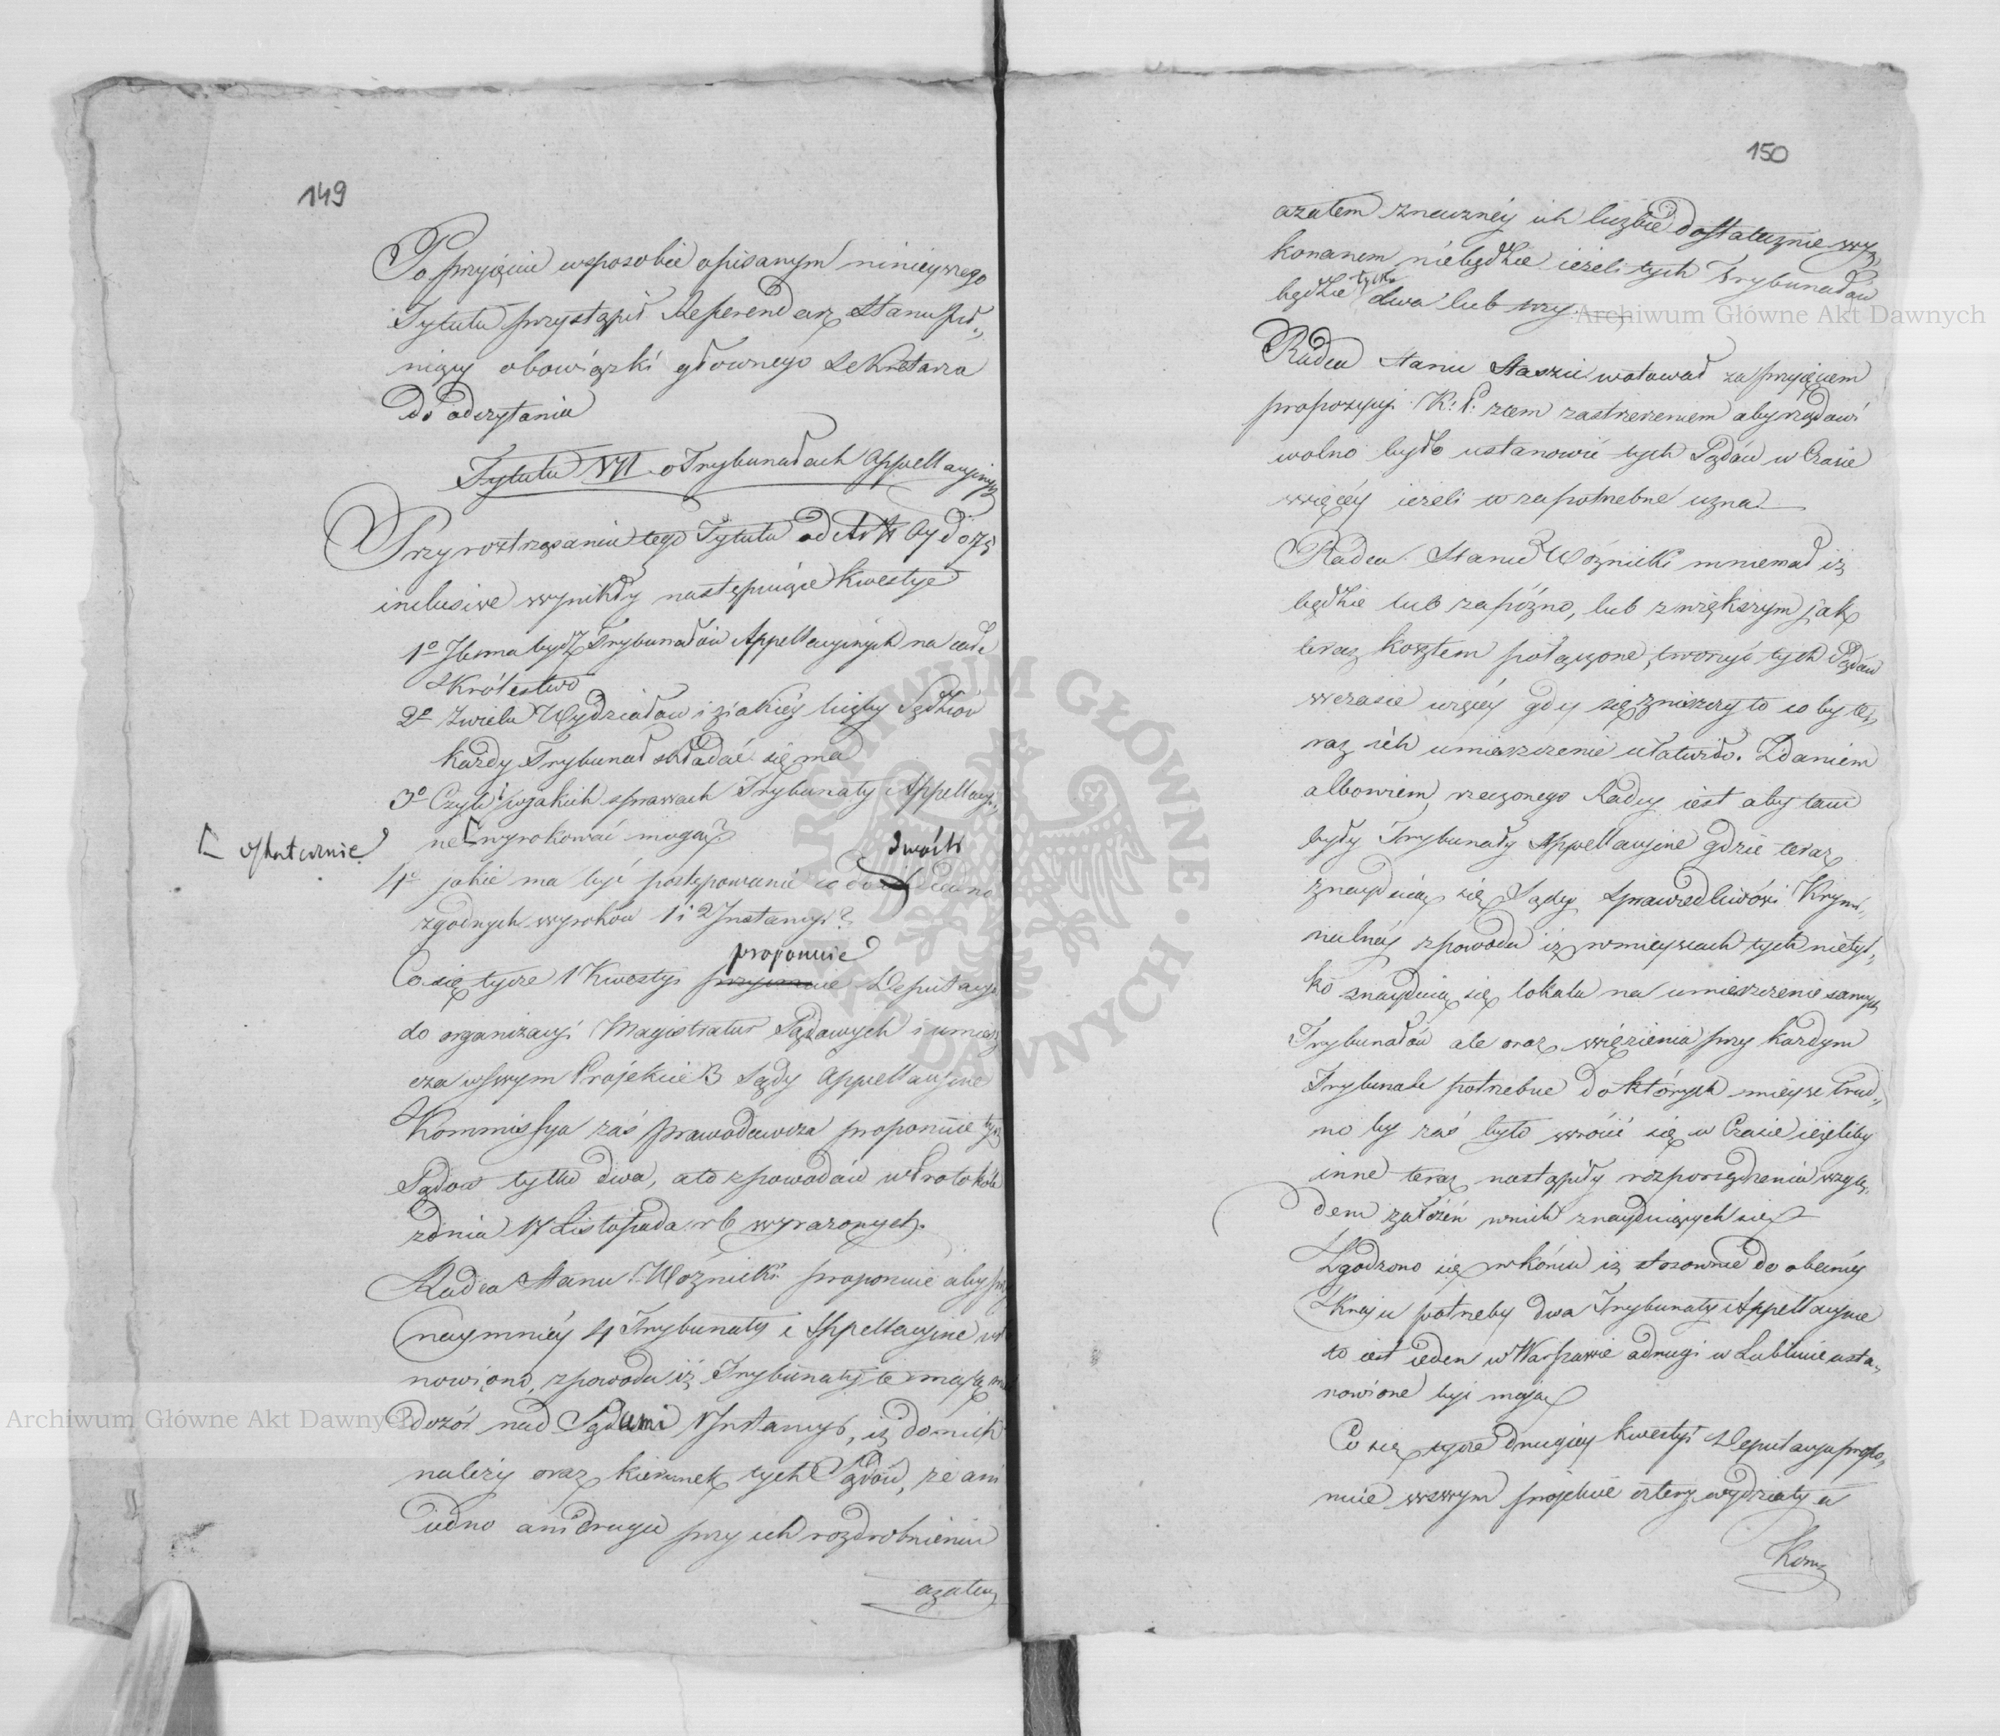 149
Po przyjęciu w sposobie opisanym ninieyszego
Tytułu przystąpił Referendarz Stanu peł„
niący obowiązki głownego Sekretarza
do odczytania
Tytułu VII o Trybunałach Appellacyinych
Przy roztrząsaniu tego Tytułu od Art. 69 do 75
inclusive wynikły następuiące kwestye
1o Ile ma bydź Trybunałów Appellacyinych na całe
Królestwo
2o Z wielu Wydziałów i z iakiéy liczby Sędziów
każdy Trybunał składać się ma
3o Czyli i w jakich sprawach Trybunały Appellacyi„
ne ⌈ wyrokować mogą?
⌈ ostatecznie
4o jakie ma być postępowanie co do dwóch
zgodnych wyroków 1 i 2 Instancyi?
Co się tycze 1 Kwestyi przyimuie proponuie Deputacya
do organizacyi Magistratur Sądowych i umiesz
cza w swym Projekcie 3 Sądy Appellacyine
Kommissya zaś prawodawcza proponuie tych
Sądów tylko dwa, a to z powodów w Protokóle
z dnia 17 Listopada r b wyrażonych.
Radca Stanu Woźnicki proponuie aby przy
naymniéy 4 Trybunały Appellacyine usta
nowiono, z powodu iż Trybunały te maią mieć
dozór nad Sądami 1 Instancyi, iż do nich
należy oraz kierunek tych Sądów, że ani
iedno ani drugie przy ich rozdrobnieniu
azatem
150
azatem znaczney ich liczbie dostatecznie wy„
konanem nie będzie ieżeli tych Trybunałów
będzie tylko dwa lub trzy.
Radca Stanu Staszic wotował za przyięciem
propozycyi K: P: z tem zastrzeżeniem aby rządowi
wolno było ustanowić tych Sądów w Czasie
więcéy ieżeli to za potrzebne uzna
Radca Stanu Woźnicki mniemał iż
będzie lub zapóźno, lub z większym jak
teraz kosztem połączone tworzyć tych Sądów
w czasie więcéy gdy się zniszczy to co by te„
raz ich umieszczenie ułatwiło. Zdaniem
albowiem rzeczonego Radcy iest aby tam
były Trybunały Appellacyine gdzie teraz
znayduią się Sądy Sprawiedliwości Krymi„
nalnéy z powodu iż w mieyscach tych nietyl„
ko znayduią się lokala na umieszczenie samych
Trybunałów ale oraz więzienia przy każdym
Trybunale potrzebne do których mieysc trud„
no by zaś było wrócić się w Czasie ieżeliby
inne teraz nastąpiły rozporządzenia wzglę„
dem założeń w nich znayduiących się
Zgodzono się w końcu iż stosownie do obecnéy
Kraju potrzeby dwa Trybunały Appellacyine
to iest ieden w Warszawie a drugi w Lublinie usta„
nowione być maią
Co się tycze drugiey kwestyi Deputacya propo„
nuie w swym projekcie cztery wydziały a
Kom
Archiwum Główne Akt Dawnych
Archiwum Główne Akt Dawnych
ARCHIWUM GŁÓWNE · AKT DAWNYCH ·